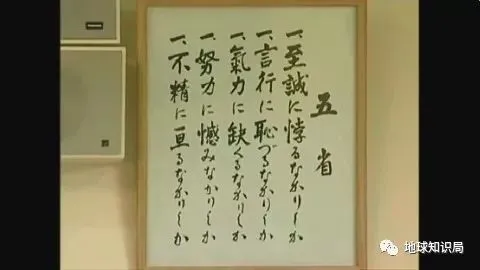 五省
一、至誠に悖るなかりしか
一、言行に恥づるなかりしか
一、氣力に缺くるなかりしか
一、努力に憾みなかりしか
一、不精に亘るなかりしか
地球知识局